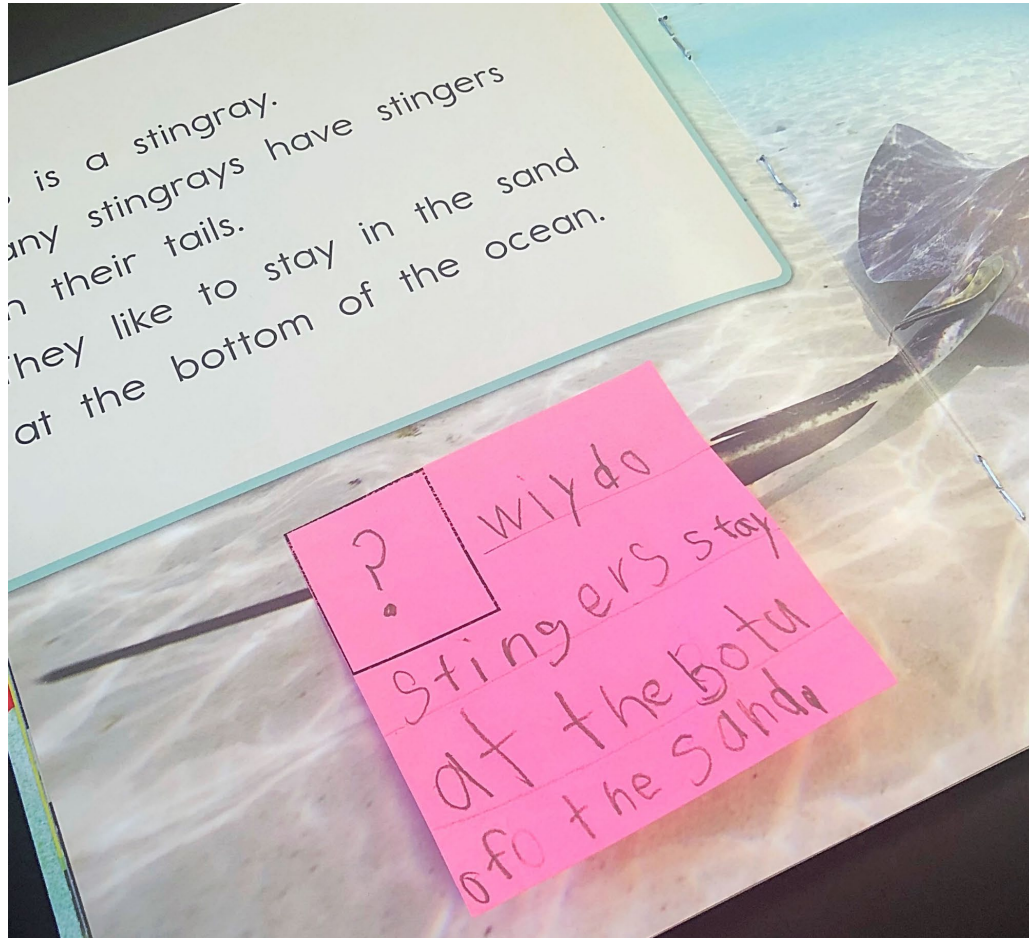 is a stingray.
any stingrays have stingers
n their tails.
hey like to stay in the sand
at the bottom of the ocean.
? wiy do
stingers stay
at the Botu
of the Sand.